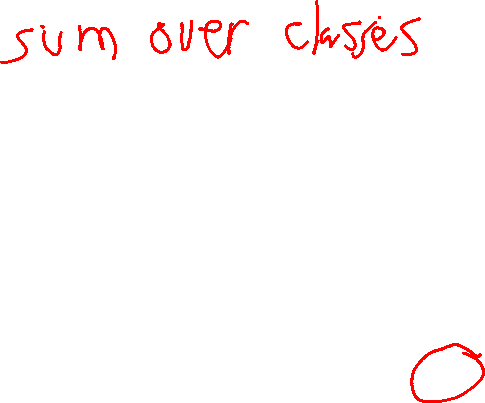 sum over classes